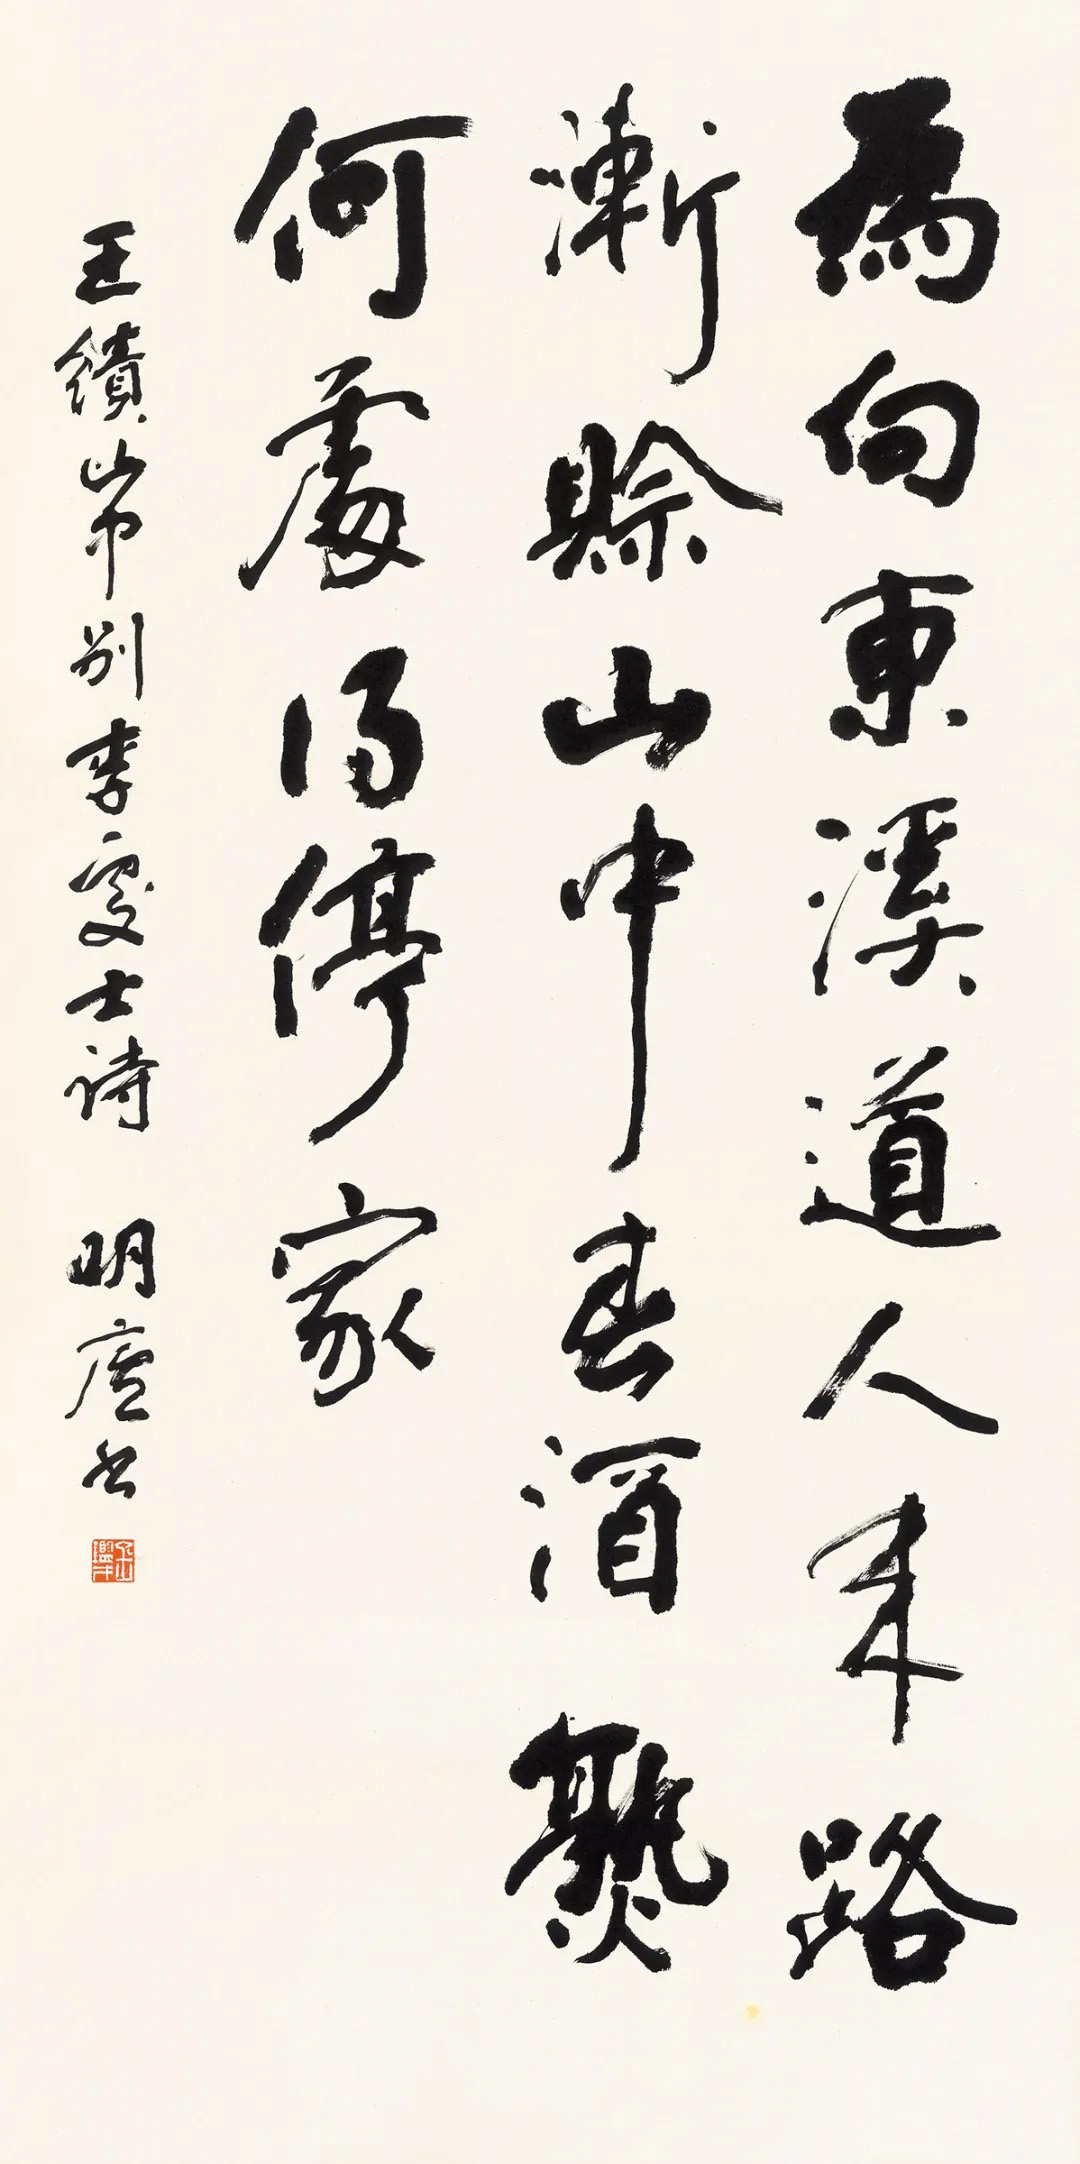 為向東溪道人來路
漸賒山中春酒熟
何處得停家
王績山中別李處士詩 明廬書
金鑑才